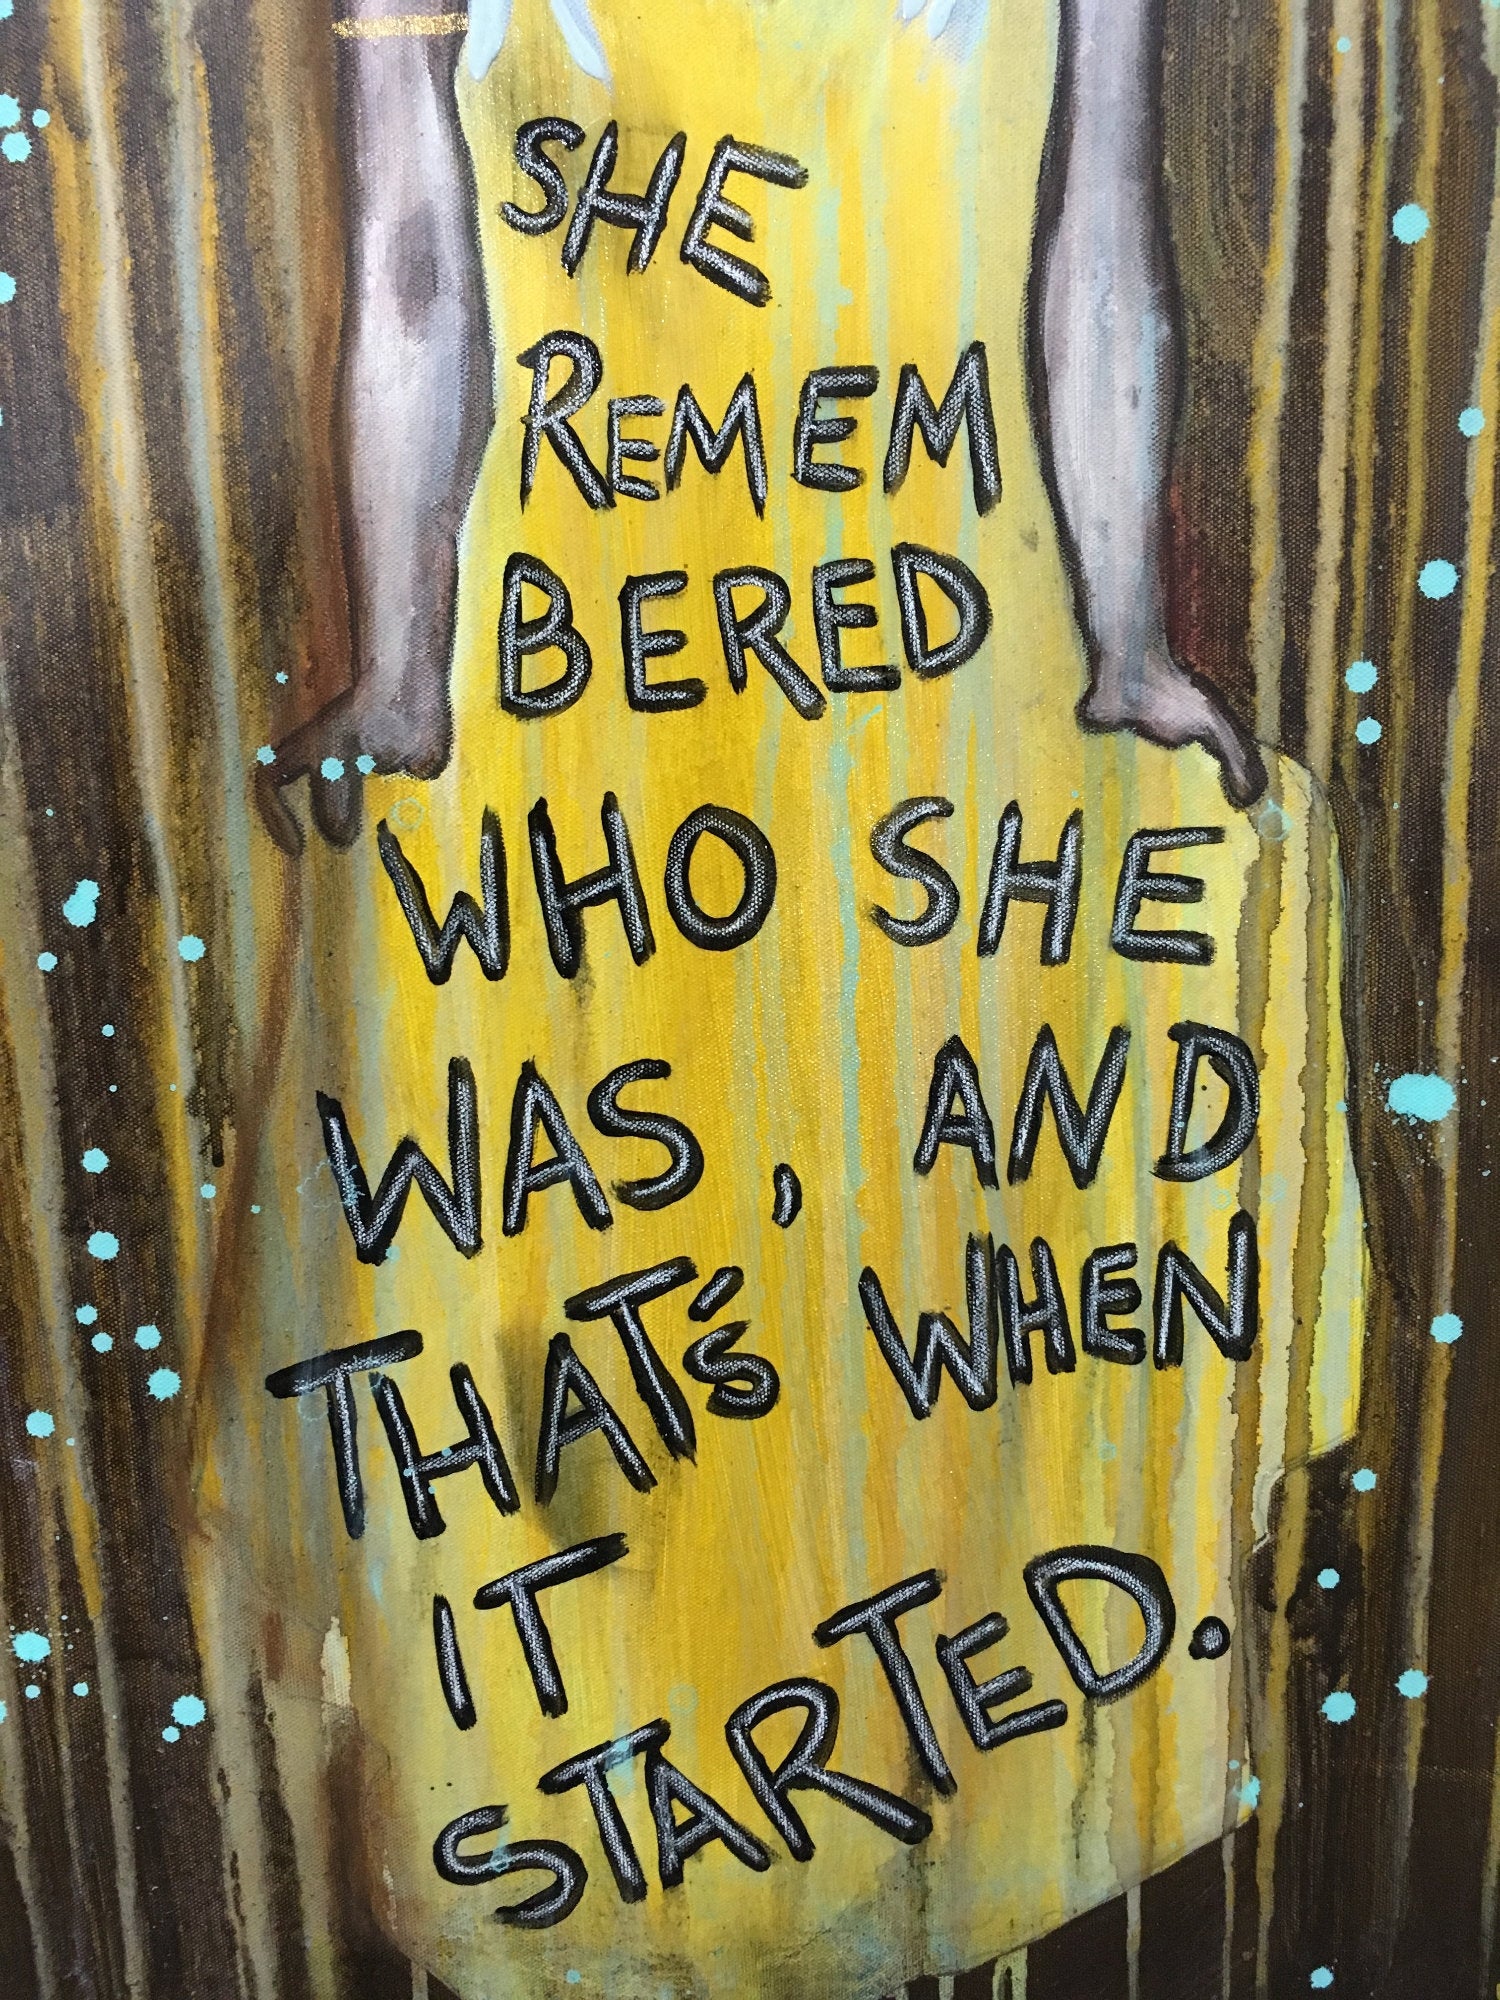 SHE
REMEM
BERED
WHO SHE
WAS, AND
THAT'S WHEN
IT
STARTED.